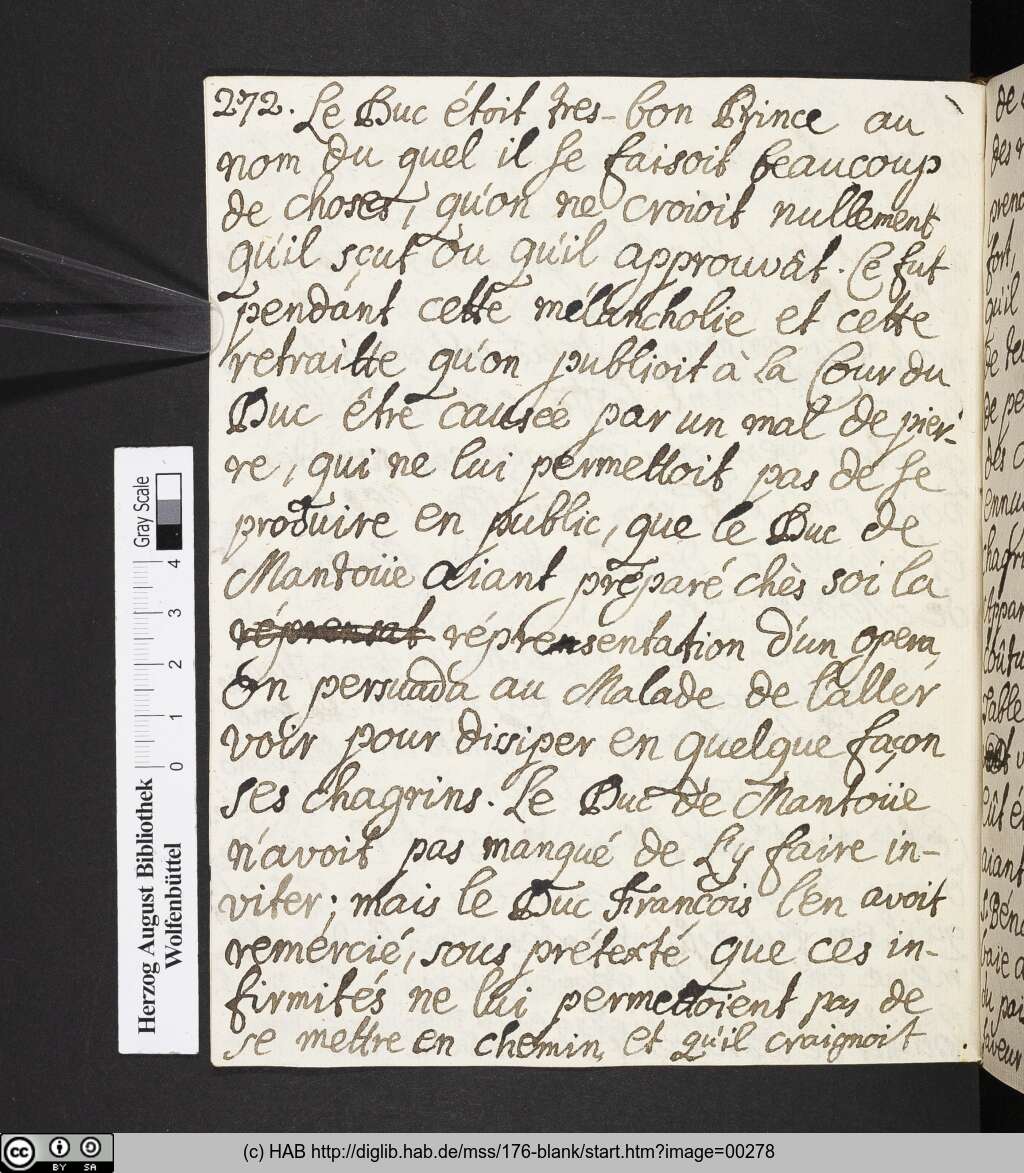 272. Le Duc étoit tres-bon Prince au
nom du quel il se faisoit beaucoup
de choses, qu'on ne croioit nullement
qu'il sçut ou qu'il approuvât. Ce fut
pendánt cette mélancholie et cette
retraitte qu'on publioit à la Cour du
Duc être causée par un mal de pier-
re, qui ne lui permettoit pas de se
produire en public, que le Duc de
Mantoüe aiant préparé chès soi la
réprensat réprensentation d'un opera,
On persuada au Malade de l'aller
voir pour dissiper en quelque façon
ses chagrins. Le Duc de Mantoüe
n'avoit pas manqué de l'y faire in-
viter; mais le Duc François l'en avoit
remércié, sous prétexté que ces in-
firmités ne lui permettoient pas de
se mettre en chemin, et qu'il craignoit
de
des
prend
fort,
qu'il
de
ennu
chagri
Appar
table
v
aiant
Béné
baie
du
Gray Scale
0 1 2 3 4
Herzog August Bibliothek
Wolfenbüttel
cc BY SA
(c) HAB http://diglib.hab.de/mss/176-blank/start.htm?image=00278